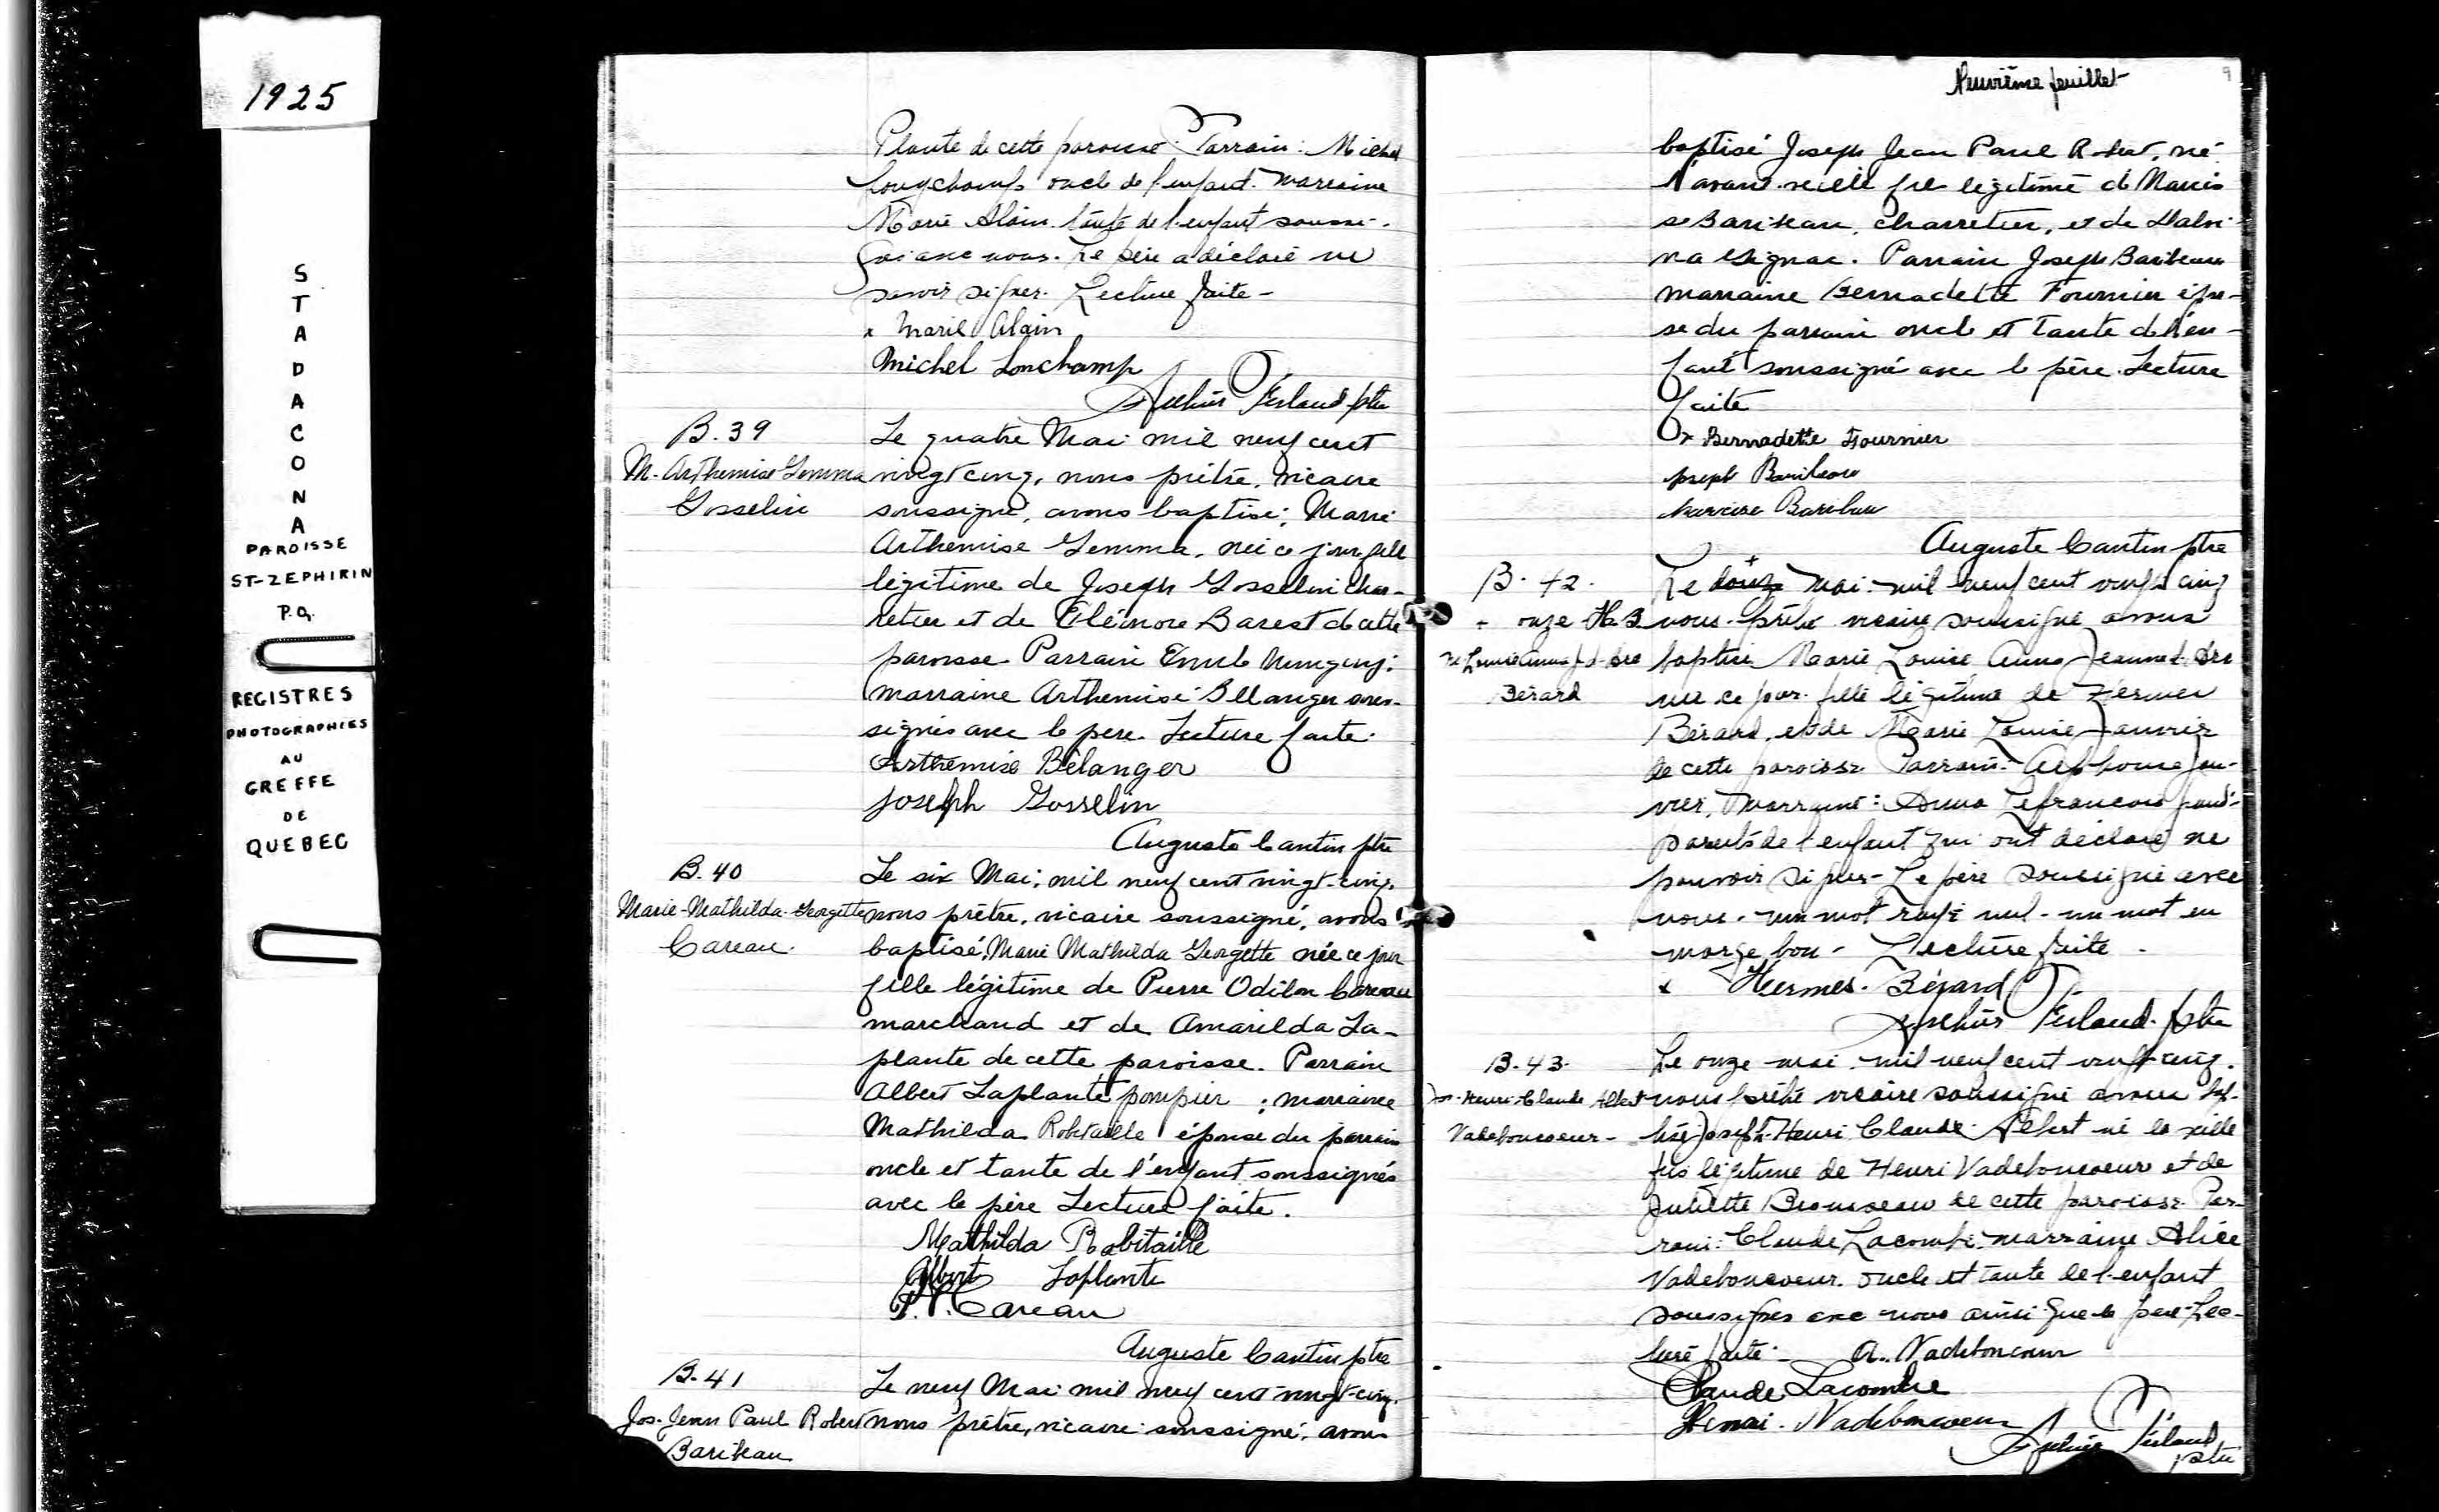 1925
S
T
A
D
A
C
O
N
A
PAROISSE
ST-ZEPHIRIN
P.Q.
REGISTRES
PHOTOGRAPHIES
AU
GREFFE
DE
QUEBEC
Plante de cette paroisse. Parrain: Michel
Longchamps oncle de l'enfant. marraine
Marie Alain tante de l'enfant soussi-
avec nous. Le père a déclaré ne
savoir signer. Lecture faite -
x Marie Alain
Michel Lonchamp
Arthur Ferland ptre
B. 39
M. Arthemise Gemma
Gosselin
Le quatre Mai mil neuf cent
vingt cinq, nous prêtre, vicaire
soussigné, avons baptisé, Marie
Arthemise Gemma, née ce jour fille
légitime de Joseph Gosselin char-
retier et de Eléonore Barest de cette
paroisse Parrain
marraine Arthemise Bélanger sous-
signés avec le père. Lecture faite.
Arthemise Bélanger
Joseph Gosselin
Auguste Cantin ptre
B. 40
Marie-Mathilda-Georgette
Careau.
Le six Mai, mil neuf cent vingt-cinq,
nous prêtre, vicaire soussigné, avons
baptisé, Marie Mathilda Georgette née ce jour
fille légitime de Pierre Odilon Careau
marchand et de Amarilda La-
plante de cette paroisse. Parrain
Albert Laplante pompier ; marraine
Mathilda Robitaille épouse du parrain
oncle et tante de l'enfant soussignés
avec le père Lecture faite.
Mathilda Robitaille
Albert Laplante
Careau
Auguste Cantin ptre
B. 41
Jos. Jean Paul Robert
Baribeau
Le neuf Mai mil neuf cent vingt-cinq,
nous prêtre, vicaire soussigné, avons
Neuvième feuillet
9
baptisé Joseph Jean Paul Robert, né
l'avant-veille fils légitime de Narcis
se Baribeau, charretier, et de Malvi-
na Gignac. Parrain Joseph Baribeau
marraine Bernadette Fournier épou-
se du parrain oncle et tante de l'en-
fant soussigné avec le père. Lecture
faite
x Bernadette Fournier
Joseph Baribeau
Narcisse Baribeau
Auguste Cantin ptre
B. 42.
+ onze H.B.
Bérard
Le douze Mai mil neuf cent vingt cinq
nous prêtre vicaire soussigné avons
baptisé Marie Louise Anna Jeanne d'Arc
née ce jour fille légitime de Hermes
Bérard, et de Marie Louise Janvier
de cette paroisse Parrain: Alphonse Jan-
vier, Marraine: Anna Lefrancois grand-
parents de l'enfant qui ont déclaré ne
pouvoir signer - Le père soussigné avec
nous. un mot rayé nul - un mot en
marge bon - Lecture faite -
x Hermes. Bérard
Arthur Ferland. ptre
B. 43.
Jos-Henri-Claude Albert
Vadeboncoeur -
Le onze mai mil neuf cent vingt-cinq.
nous prêtre vicaire soussigné avons bap-
tisé Joseph-Henri Claude Albert né la veille
fils légitime de Henri Vadeboncoeur et de
Juliette Brousseau de cette paroisse Par-
rain: Claude Lacombe. marraine Alice
Vadeboncoeur. oncle et tante de l'enfant
soussignés avec nous ainsi que le père - Lec-
ture faite - A. Vadeboncoeur
Claude Lacombe
Henri. Vadeboncoeur
Arthur Ferland
ptre